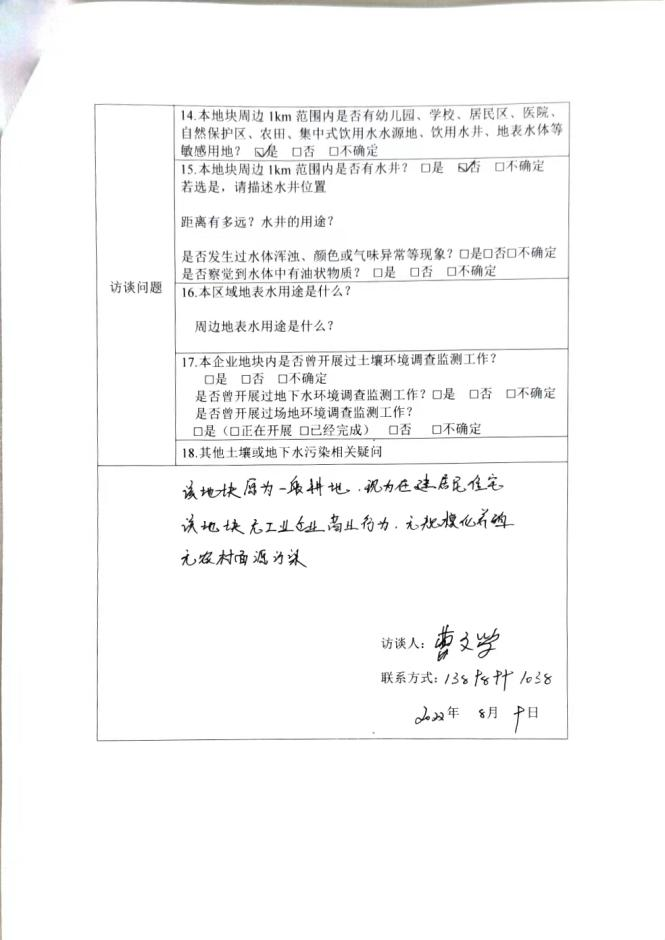 14.本地块周边 1km 范围内是否有幼儿园、学校、居民区、医院、
自然保护区、农田、集中式饮用水水源地、饮用水井、地表水体等
敏感用地？ ☑是 □否 □不确定
15.本地块周边 1km 范围内是否有水井？ □是 ☑否 □不确定
若选是，请描述水井位置
距离有多远？水井的用途？
是否发生过水体浑浊、颜色或气味异常等现象？□是□否□不确定
是否察觉到水体中有油状物质？ □是 □否 □不确定
访谈问题
16.本区域地表水用途是什么？
周边地表水用途是什么？
17.本企业地块内是否曾开展过土壤环境调查监测工作？
□是 □否 □不确定
是否曾开展过地下水环境调查监测工作？□是 □否 □不确定
是否曾开展过场地环境调查监测工作？
□是（□正在开展 □已经完成） □否 □不确定
18.其他土壤或地下水污染相关疑问
该地块原为一般耕地，现为在建居民住宅
该地块无工业企业商业行为，无规模化养殖
无农村面源污染
访谈人：曹文学
联系方式：138 1038
2022年 8月 日